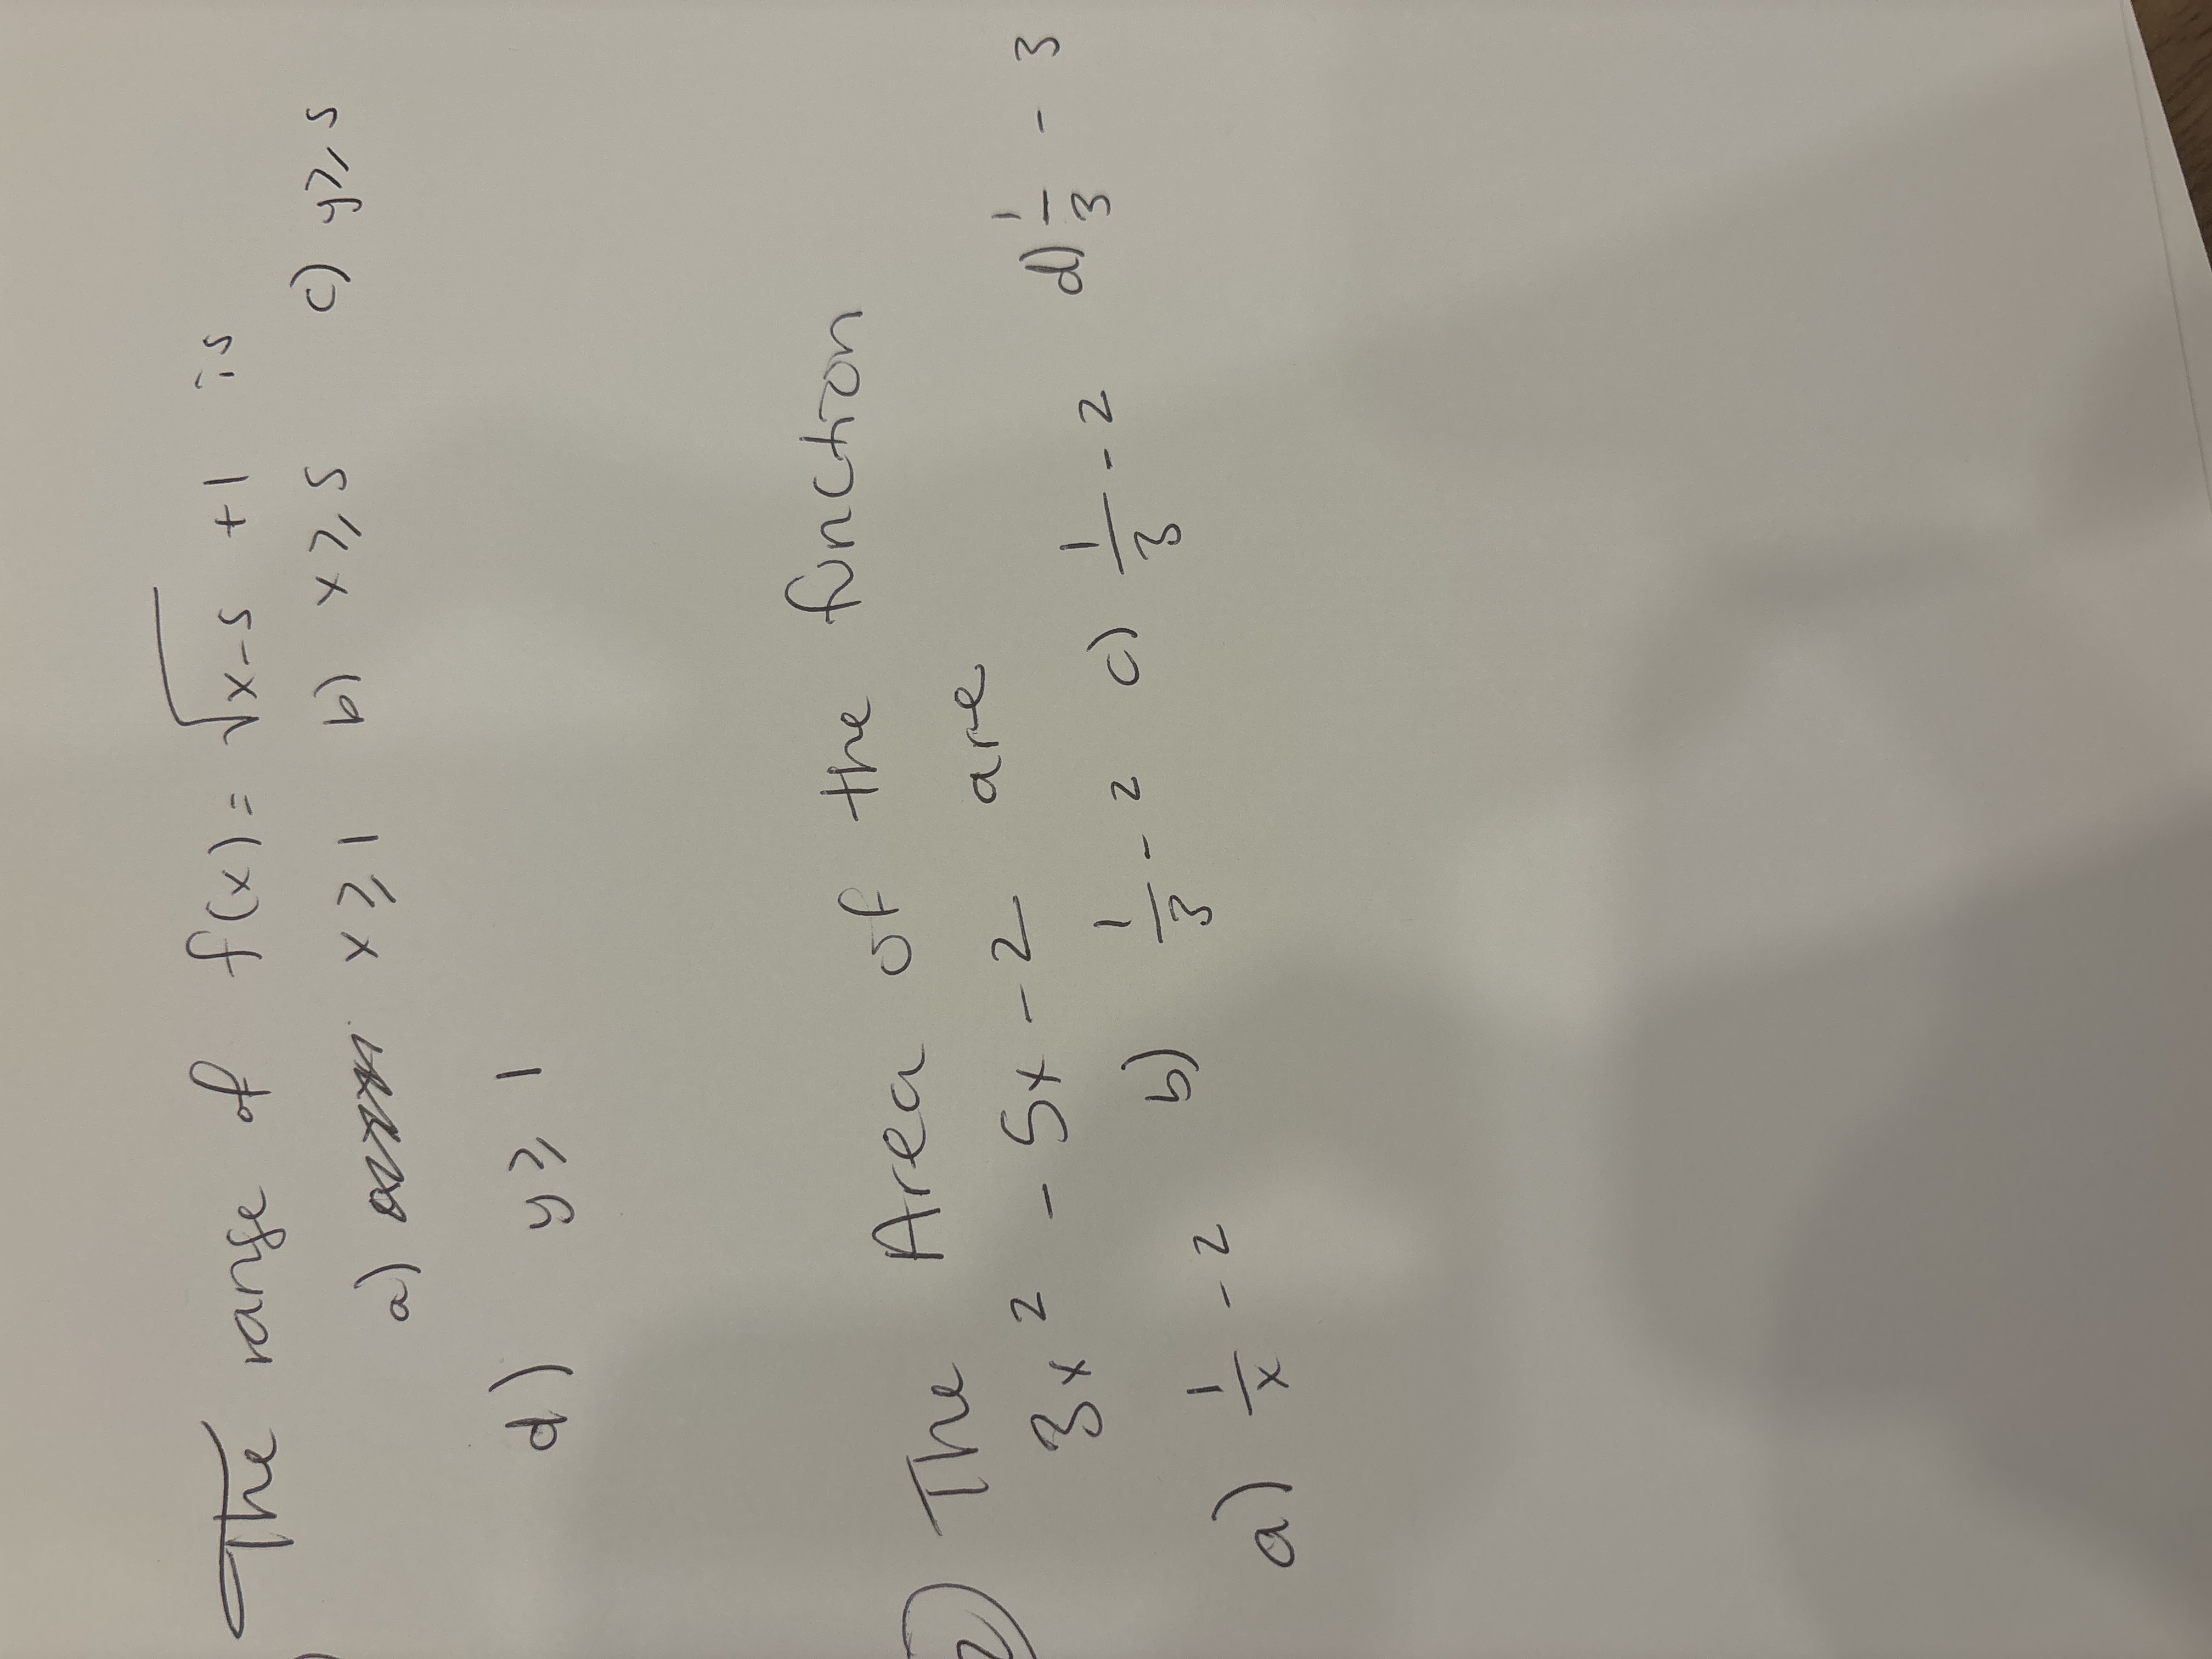 The range of f(x) = √x-5 +1 is
a) x ⩾ 1 b) x ⩾ 5 c) y ⩾ 5
d) y ⩾ 1
2) The Area of the function
3x² - 5x - 2 are
a) 1/x - 2 b) 1/3 - 2 c) 1/3 - 2 d) 1/3 - 3